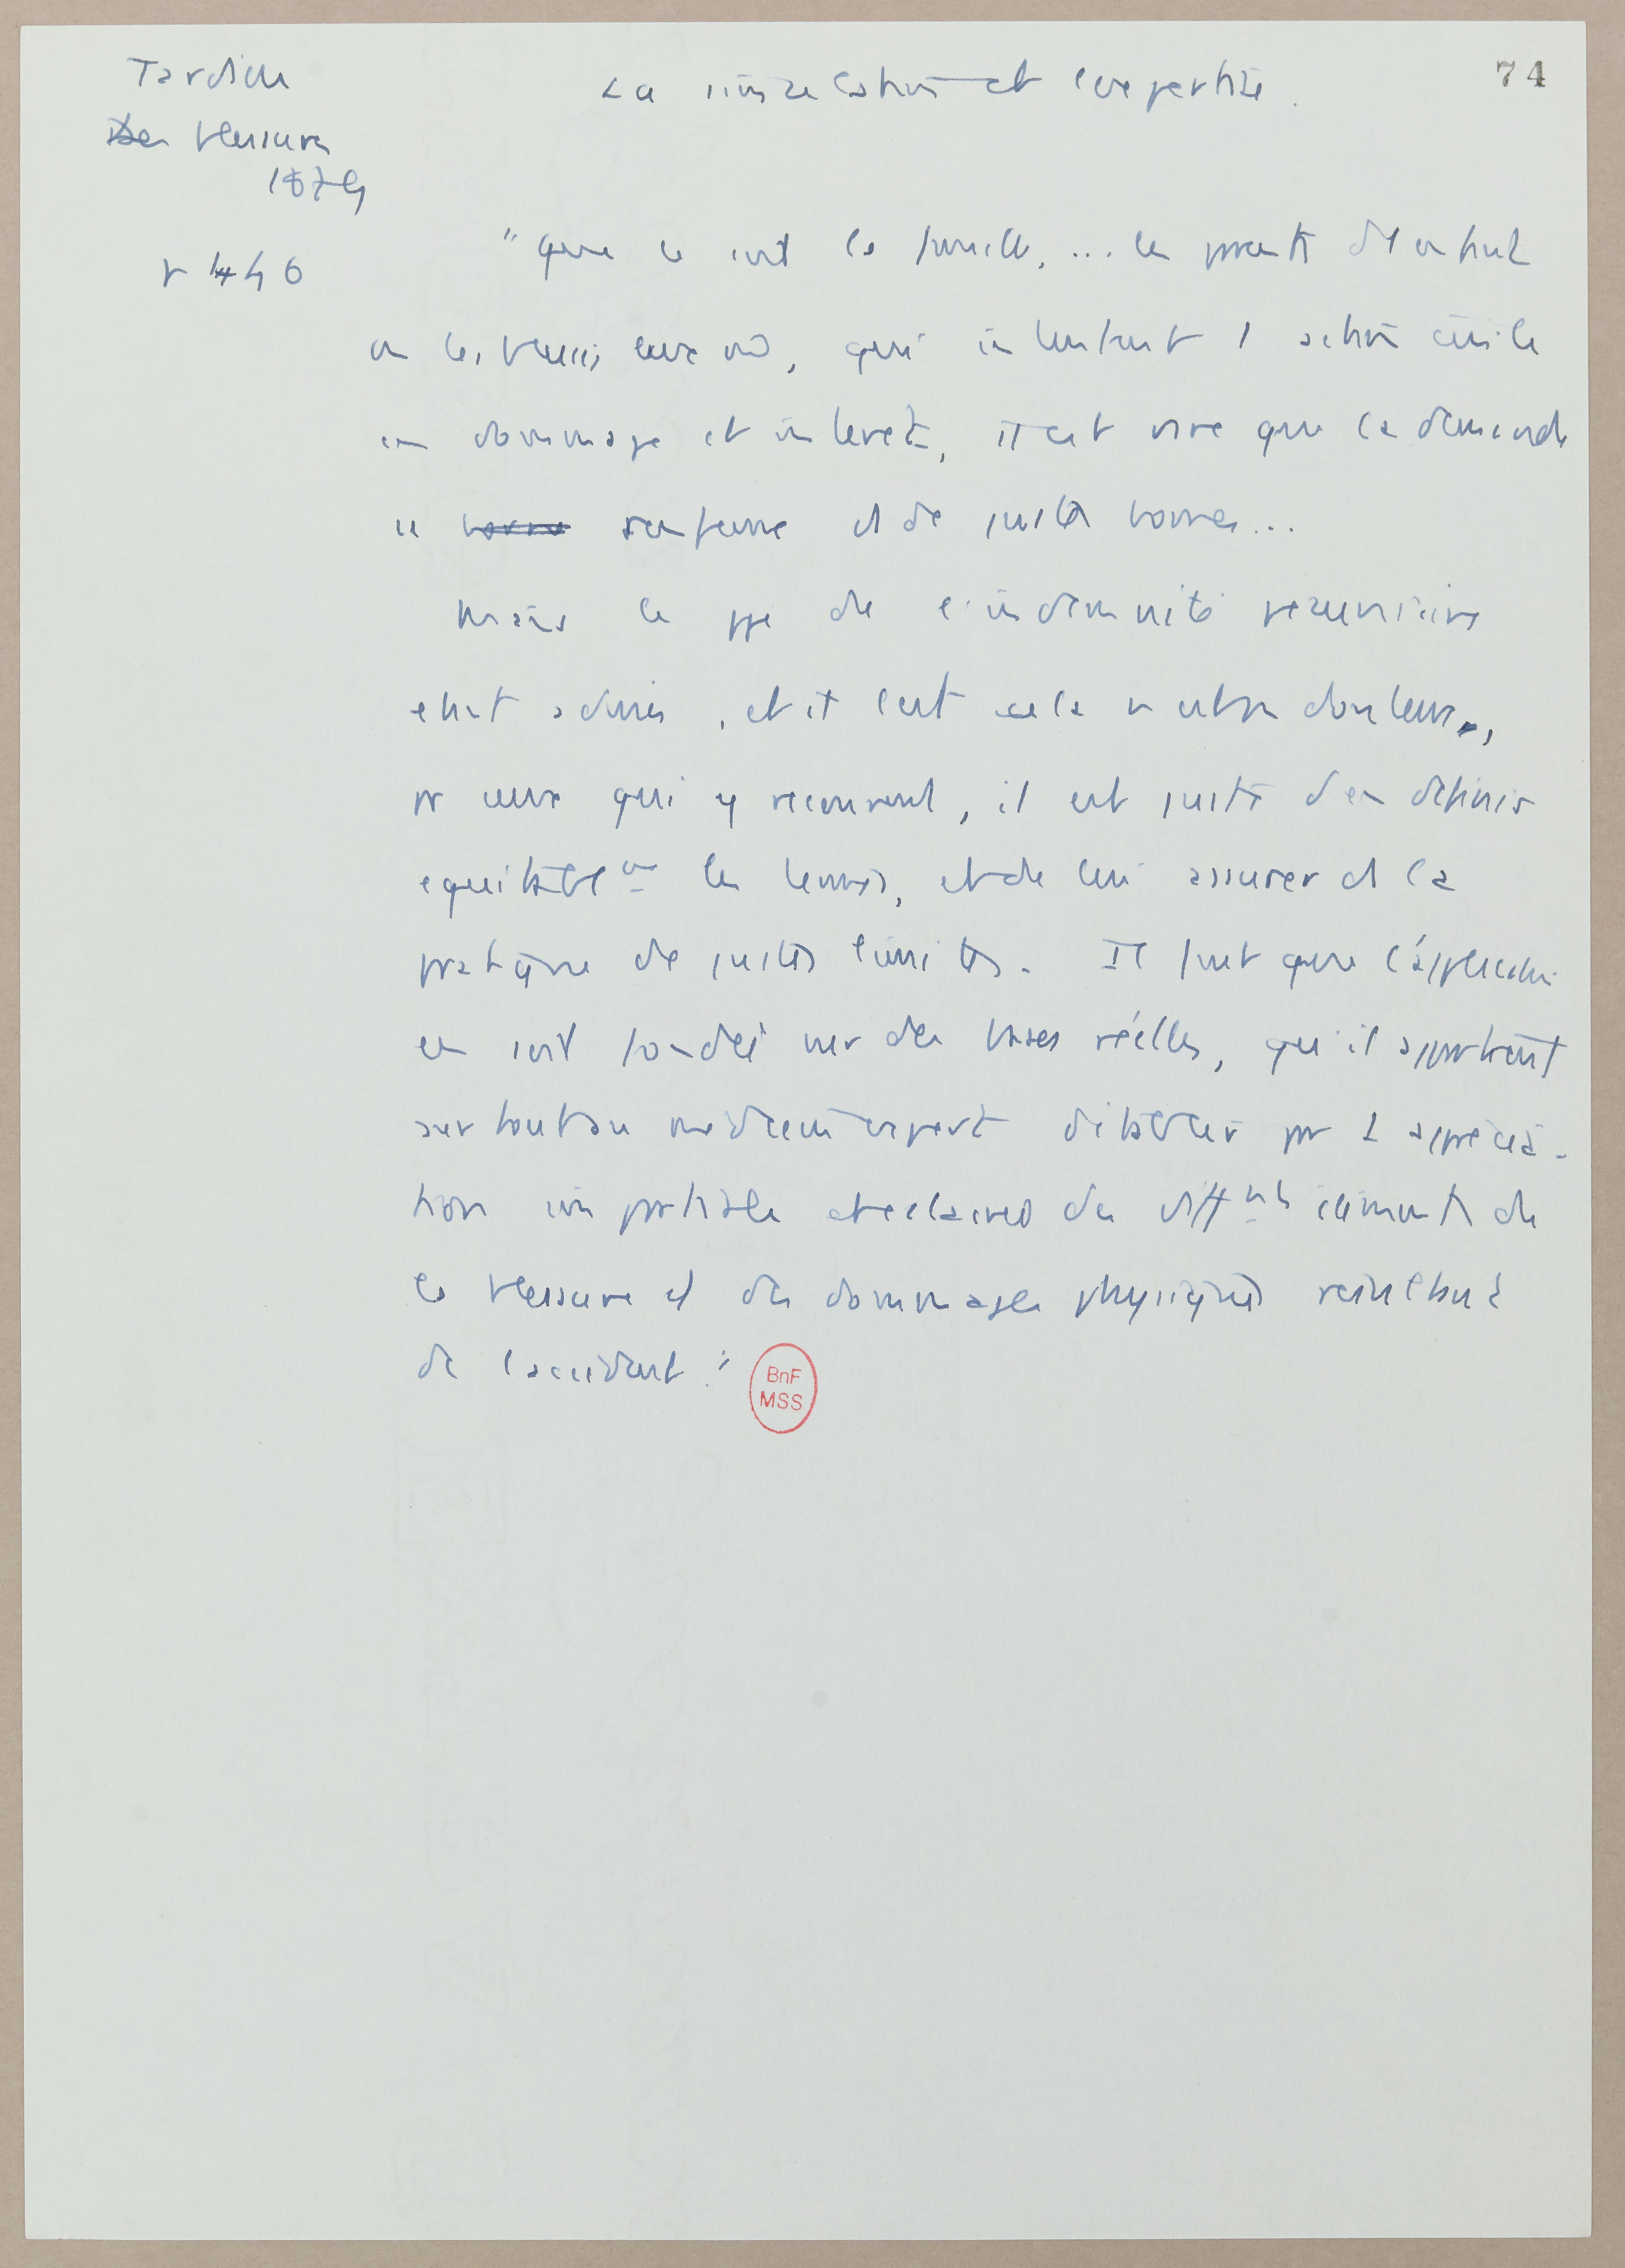 Tardieu
Des blessures
1879
p 446
La simulation et l'expertise.
74
"que ce soit la famille, ... les parents de la victime
ou les blessés eux mêmes, qui intentent 1 action civile
en dommage et intérêts, il est rare que la demande
se renferme ds de justes bornes...
Mais le ppe de l'indemnité pécuniaire
étant admis, et il l'est cela
pr ceux qui y recourent, il est juste d'en définir
équitablemt les termes, et de lui assurer ds la
pratique de justes limites. Il faut que l'application
en soit fondée sur des bases réelles, qu'il appartient
surtout au médecin expert d'établir par 1 apprécia-
tion impartiale et éclairée des diffrents éléments de
la blessure et des dommages physiques résultant
de l'accident."
BnF
MSS